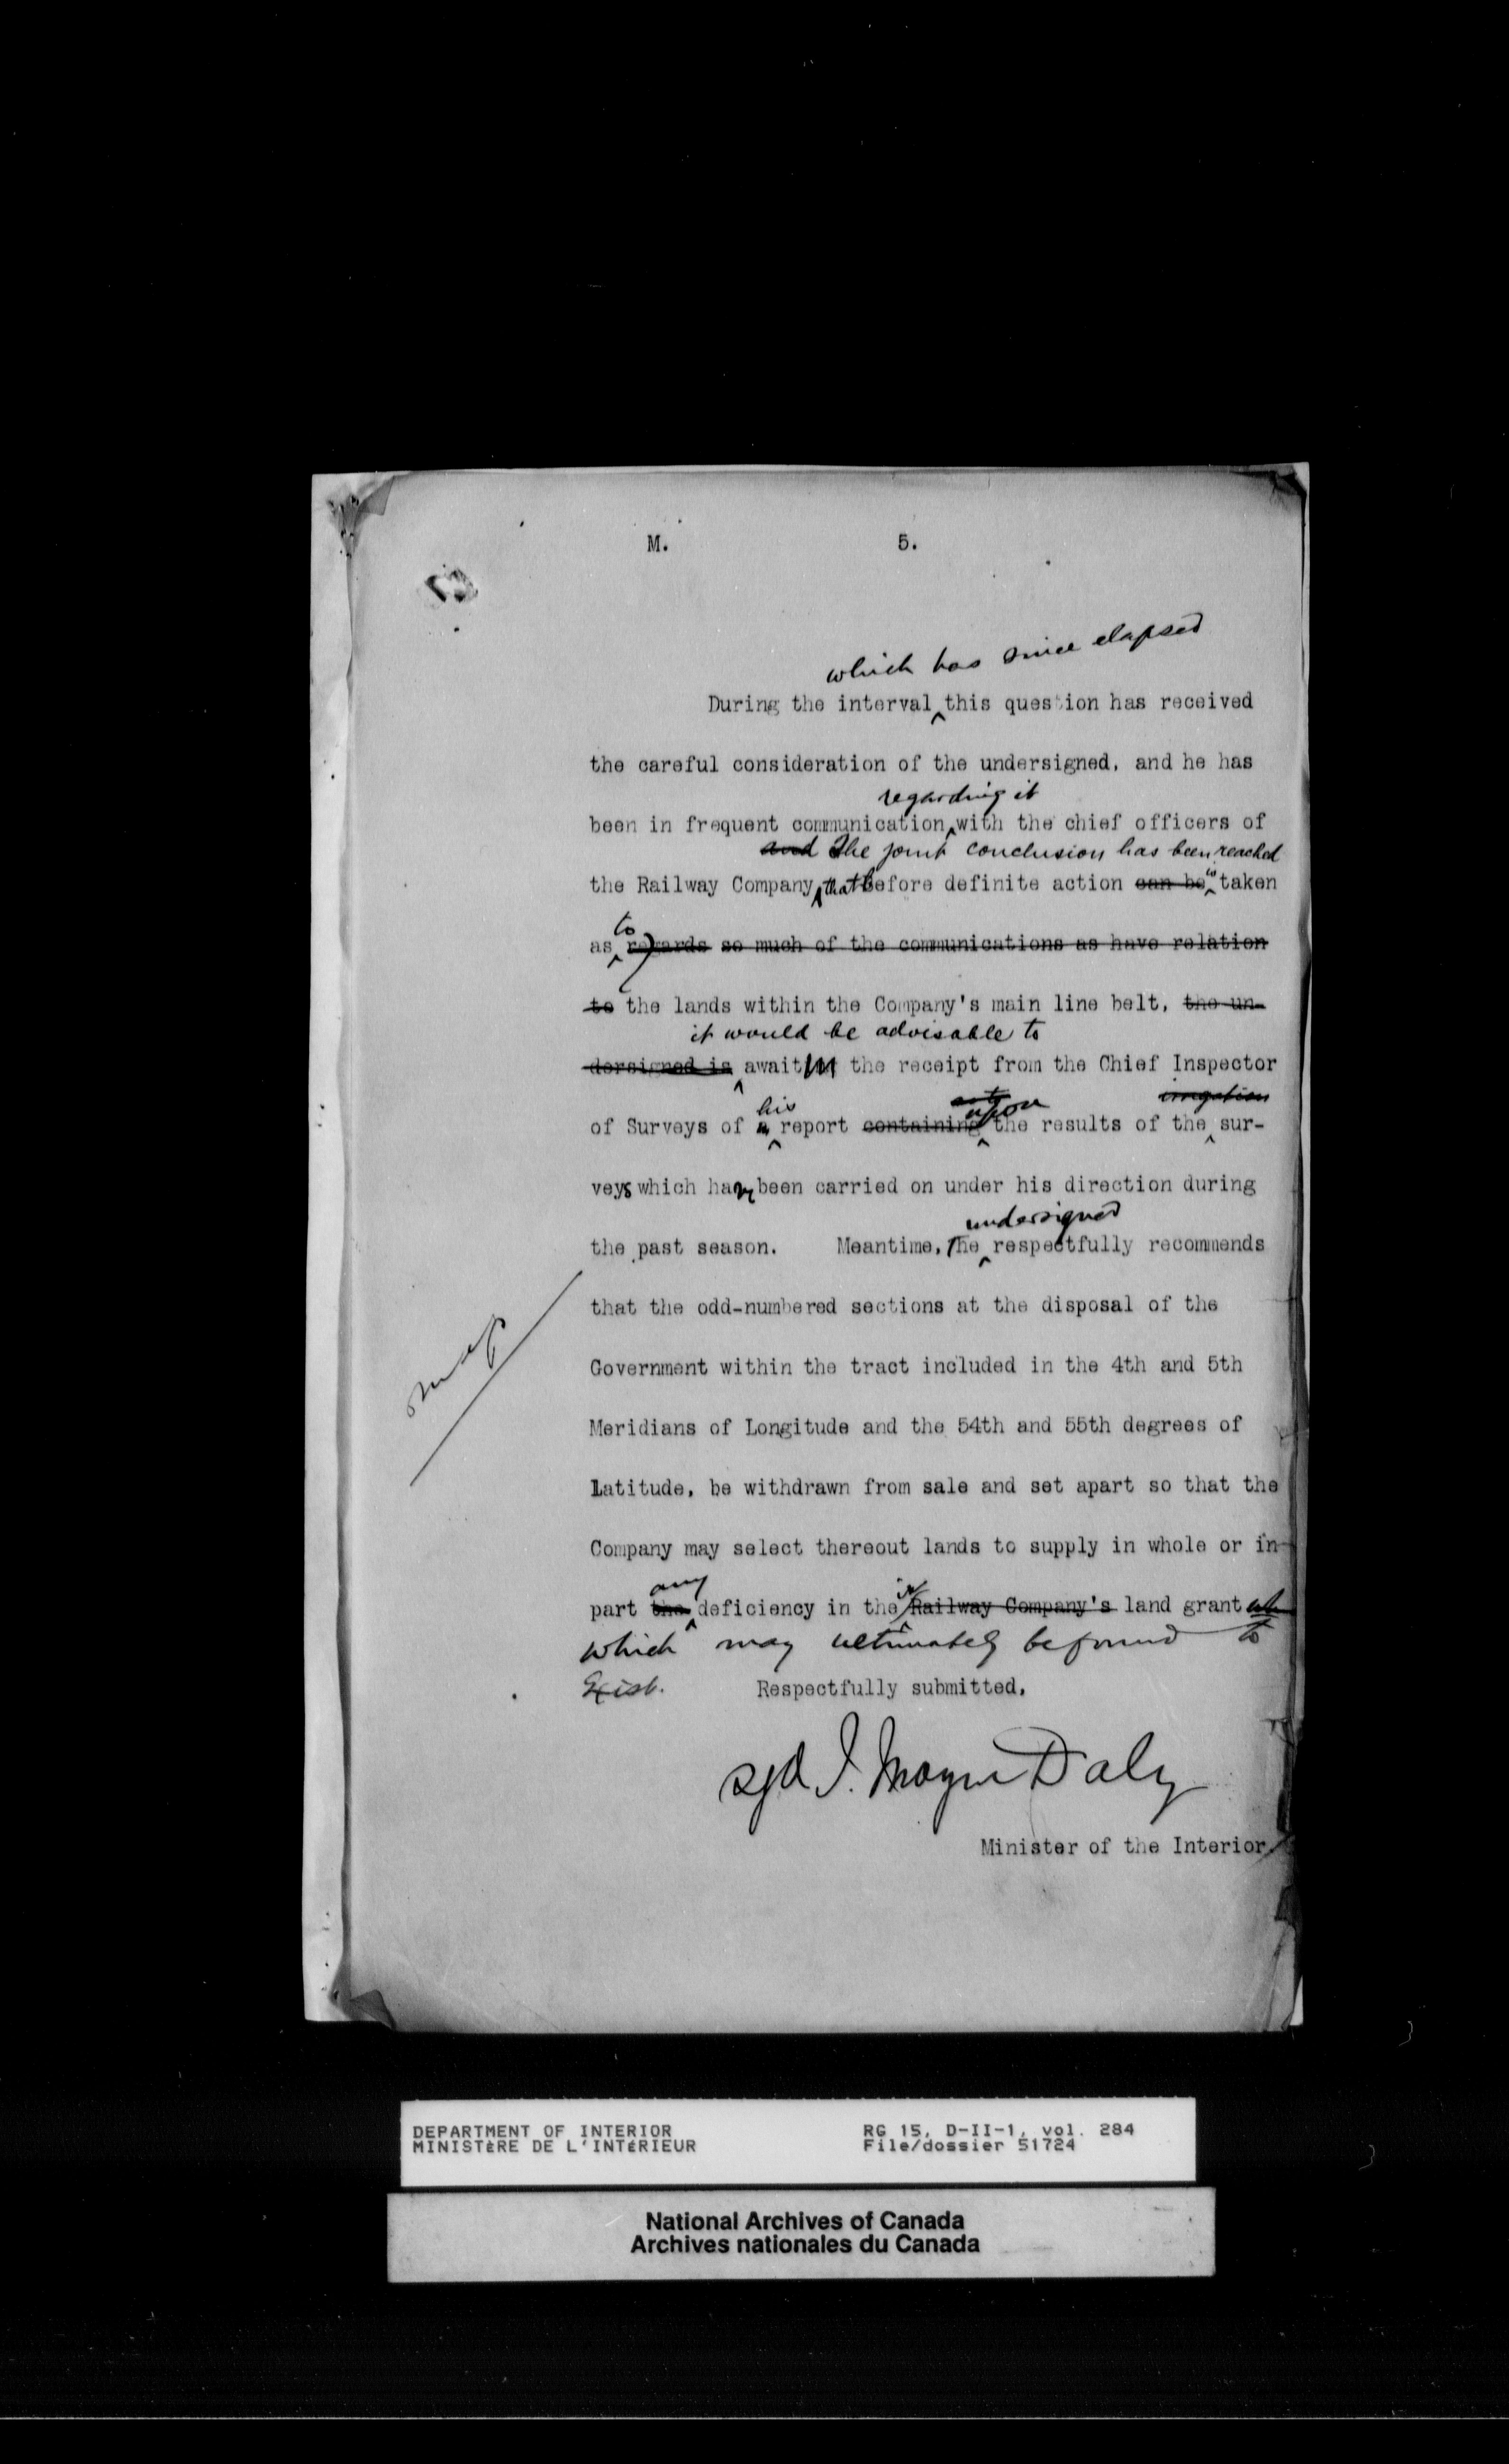 M. 5.
which has since elapsed
During the interval this question has received
the careful consideration of the undersigned, and he has
regarding it
been in frequent communication with the chief officers of
and The joint conclusion has been reached
the Railway Company that before definite action can be is taken
to
as regards so much of the communications as have relation
to the lands within the Company's main line belt, the un-
it would be advisable to
dersigned is await the receipt from the Chief Inspector
his upon irrigation
of Surveys of a report containing the results of the sur-
veys which have been carried on under his direction during
undersigned
the past season. Meantime, the respectfully recommends
that the odd-numbered sections at the disposal of the
Government within the tract included in the 4th and 5th
Meridians of Longitude and the 54th and 55th degrees of
Latitude, be withdrawn from sale and set apart so that the
Company may select thereout lands to supply in whole or in
any its
part the deficiency in the Railway Company's land grant wh
which may ultimately be found to
exist. Respectfully submitted,
sgd T. Mayne Daly
Minister of the Interior.
DEPARTMENT OF INTERIOR RG 15, D-II-1, vol. 284
MINISTÈRE DE L'INTÉRIEUR File/dossier 51724
National Archives of Canada
Archives nationales du Canada